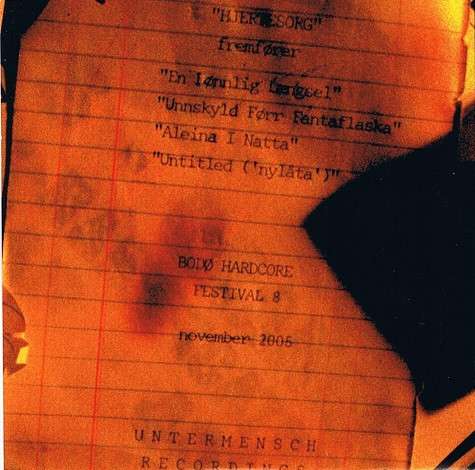 "HJERTESORG"
fremfører
"En lønnlig fængsel"
"Unnskyld Førr Fantaflaska"
"Aleina I Natta"
"Untitled ('nylåta')"
BODØ HARDCORE
FESTIVAL 8
november 2005
UNTERMENSCH
RECORDINGS